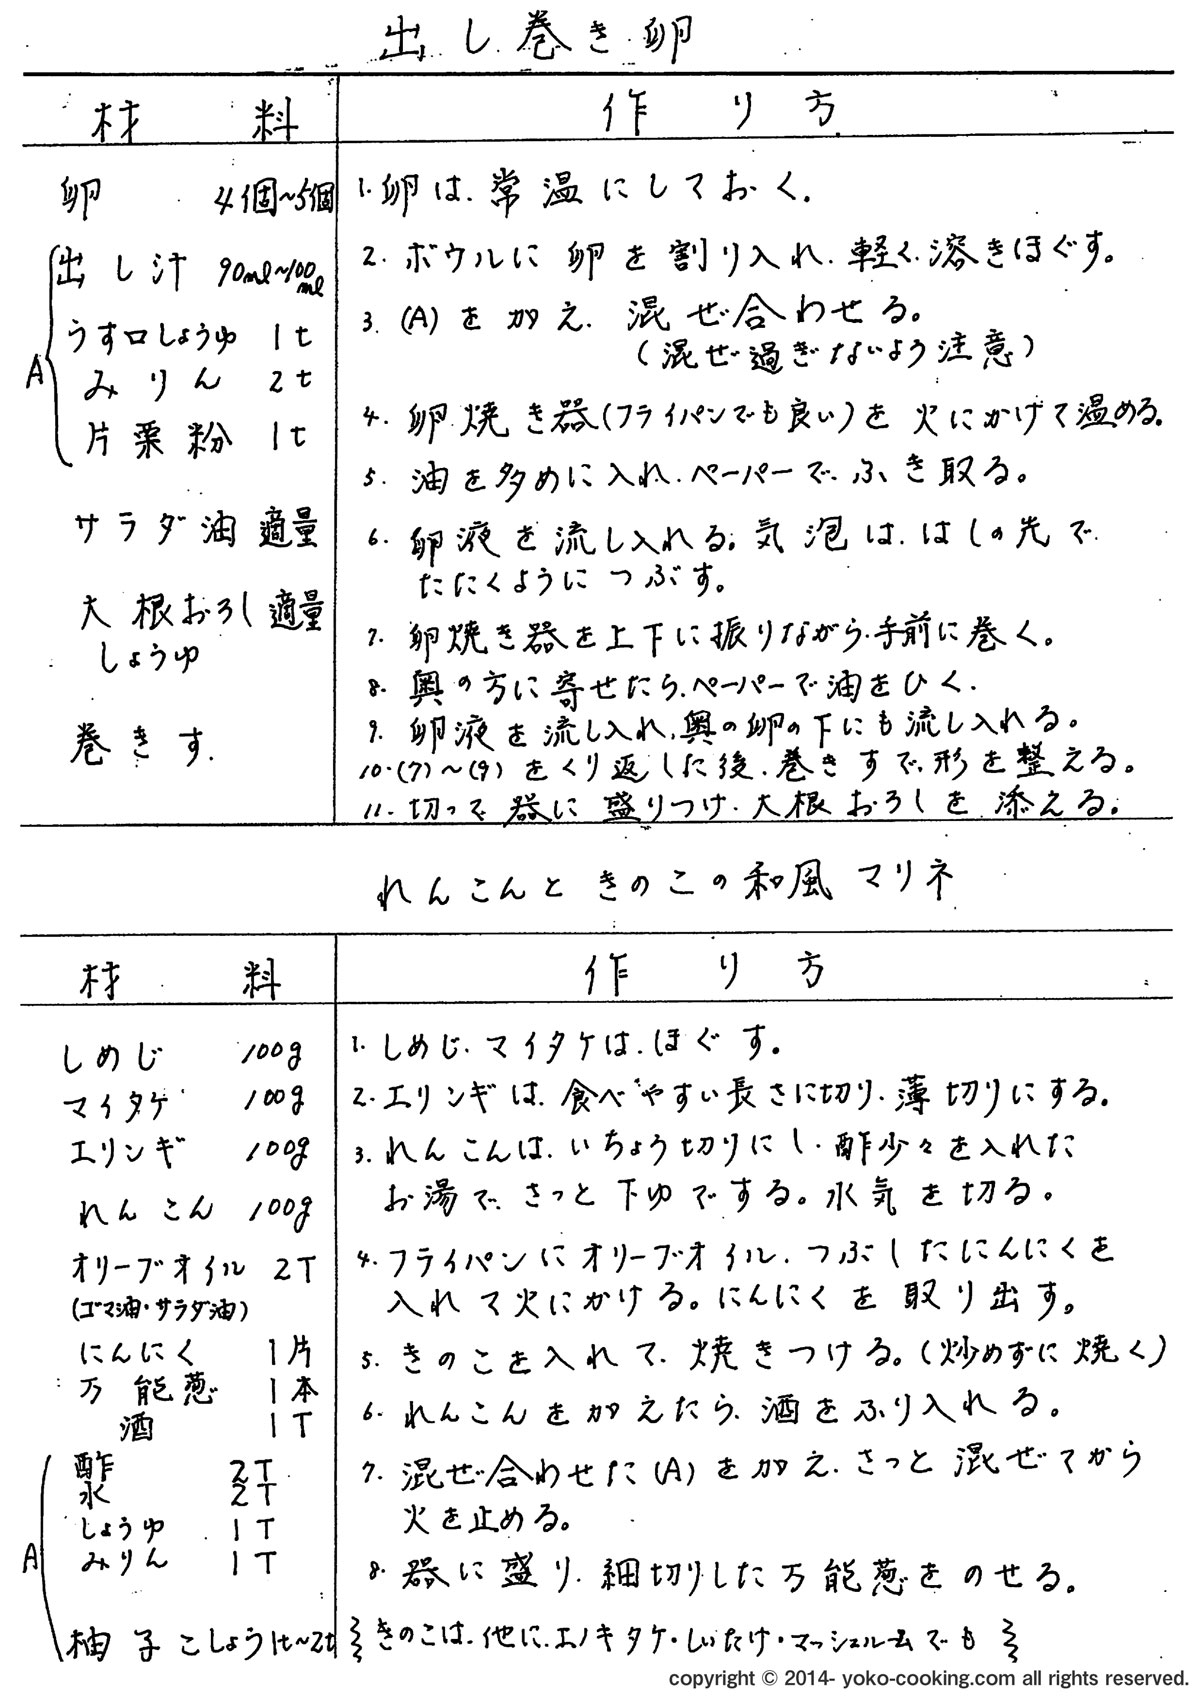 出し巻き卵
材料
作り方
卵 4個~5個
A
出し汁 90ml~100ml
うす口しょうゆ 1t
みりん 2t
片栗粉 1t
サラダ油 適量
大根おろし 適量
しょうゆ
巻きす.
1. 卵は、常温にしておく。
2. ボウルに卵を割り入れ、軽く、溶きほぐす。
3. (A)を加え、混ぜ合わせる。
(混ぜ過ぎないよう注意)
4. 卵焼き器(フライパンでも良い)を火にかけて温める。
5. 油を多めに入れ、ペーパーで、ふき取る。
6. 卵液を流し入れる。気泡は、はしの先で、
たたくようにつぶす。
7. 卵焼き器を上下に振りながら、手前に巻く。
8. 奥の方に寄せたら、ペーパーで油をひく。
9. 卵液を流し入れ、奥の卵の下にも流し入れる。
10. (7)~(9)をくり返した後、巻きすで、形を整える。
11. 切って、器に盛りつけ、大根おろしを添える。
れんこんときのこの和風マリネ
材料
作り方
しめじ 100g
マイタケ 100g
エリンギ 100g
れんこん 100g
オリーブオイル 2T
(ゴマ油・サラダ油)
にんにく 1片
万能葱 1本
酒 1T
A
酢 2T
水 2T
しょうゆ 1T
みりん 1T
柚子こしょう 1t~2t
1. しめじ、マイタケは、ほぐす。
2. エリンギは、食べやすい長さに切り、薄切りにする。
3. れんこんは、いちょう切りにし、酢少々を入れた
お湯で、さっと下ゆでする。水気を切る。
4. フライパンにオリーブオイル、つぶしたにんにくを
入れて火にかける。にんにくを取り出す。
5. きのこを入れて、焼きつける。(炒めずに焼く)
6. れんこんを加えたら、酒をふり入れる。
7. 混ぜ合わせた(A)を加え、さっと混ぜてから
火を止める。
8. 器に盛り、細切りした万能葱をのせる。
きのこは、他に、エノキタケ・しいたけ・マッシュルームでも
copyright © 2014- yoko-cooking.com all rights reserved.